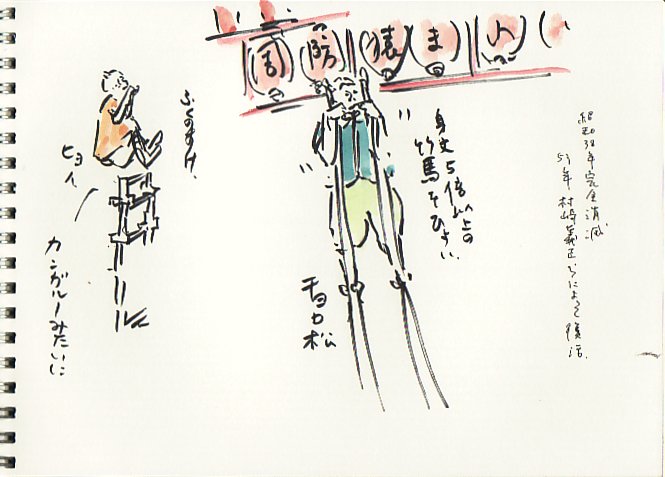 周防猿まわ
昭和38年完全消滅
53年村崎義正らによって復活.
身丈5倍以上の
竹馬をひょい.
チョロ松
ふくのすけ.
ヒョイ
カンガルーみたいに